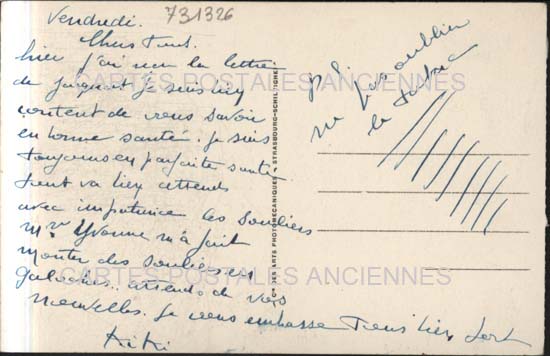 Vendredi.
731326
Chers Tous.
hier j'ai reçu la lettre
de Jacquot je suis bien
content de vous savoir
en bonne santé. je suis
toujours en parfaite santé
tout va bien attends
avec impatience les souliers
Mme Yvonne m'a fait
monter des souliers en
galoches. attends de vos
nouvelles. je vous embrasse tous bien fort
Kiki
P.S.
ne pas oublier
le tabac
CARTES POSTALES ANCIENNES
CARTES POSTALES ANCIENNES
Cie DES ARTS PHOTOMÉCANIQUES - STRASBOURG-SCHILTIGHEIM